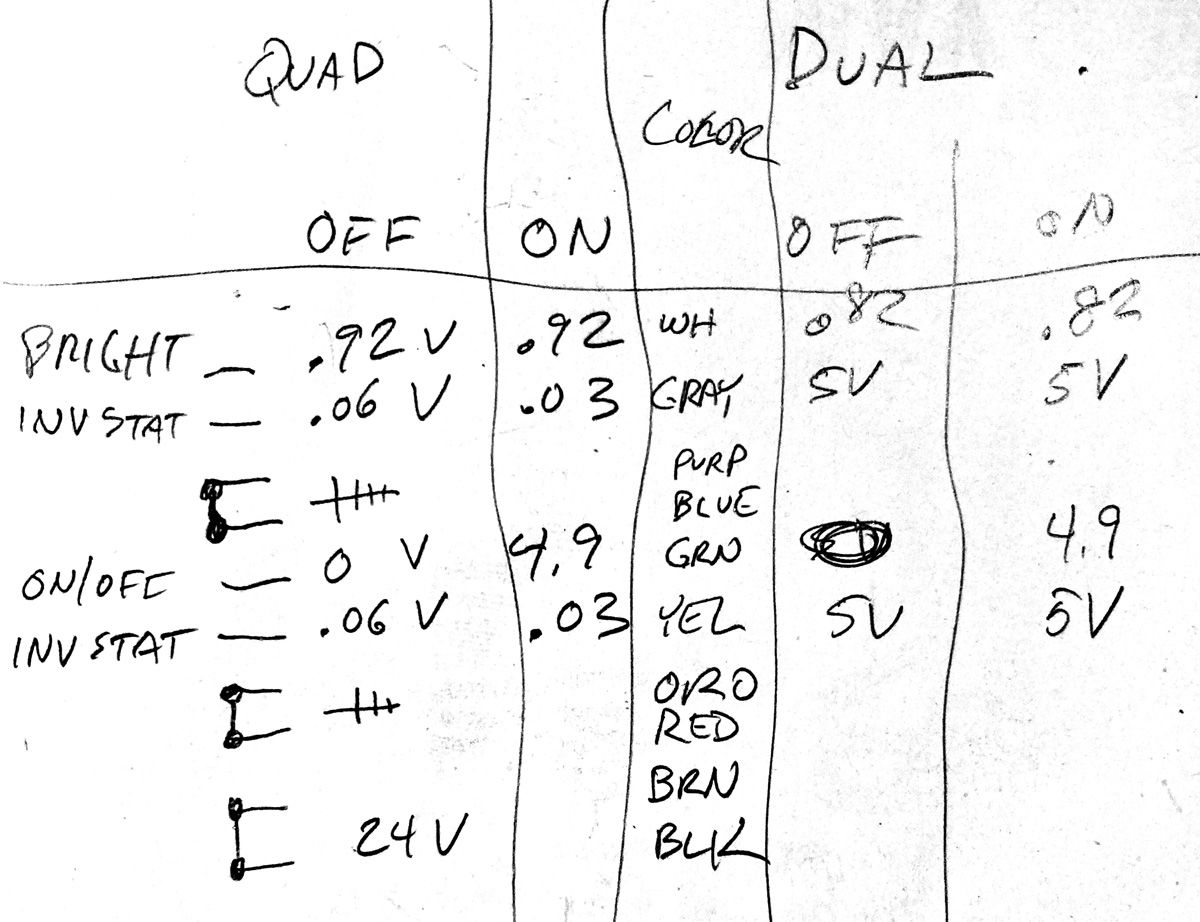 QUAD DUAL
COLOR
OFF ON OFF ON
BRIGHT — .92 V .92 WH .82 .82
INV STAT — .06 V .03 GRAY 5V 5V
PURP
BLUE
ON/OFF — 0 V 4.9 GRN 4.9
INV STAT — .06 V .03 YEL 5V 5V
ORO
RED
BRN
24 V BLK